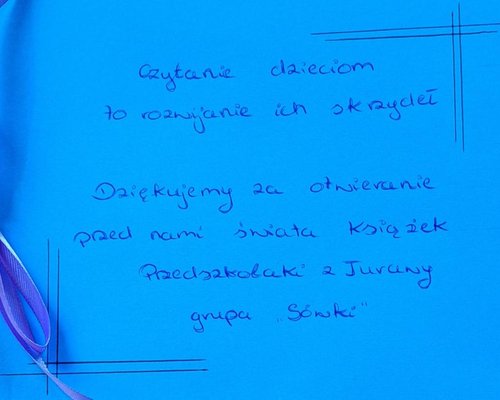 Czytanie dzieciom
to rozwijanie ich skrzydeł
Dziękujemy za otwieranie
przed nami świata książek
Przedszkolaki z Jurawy
grupa „Sówki"